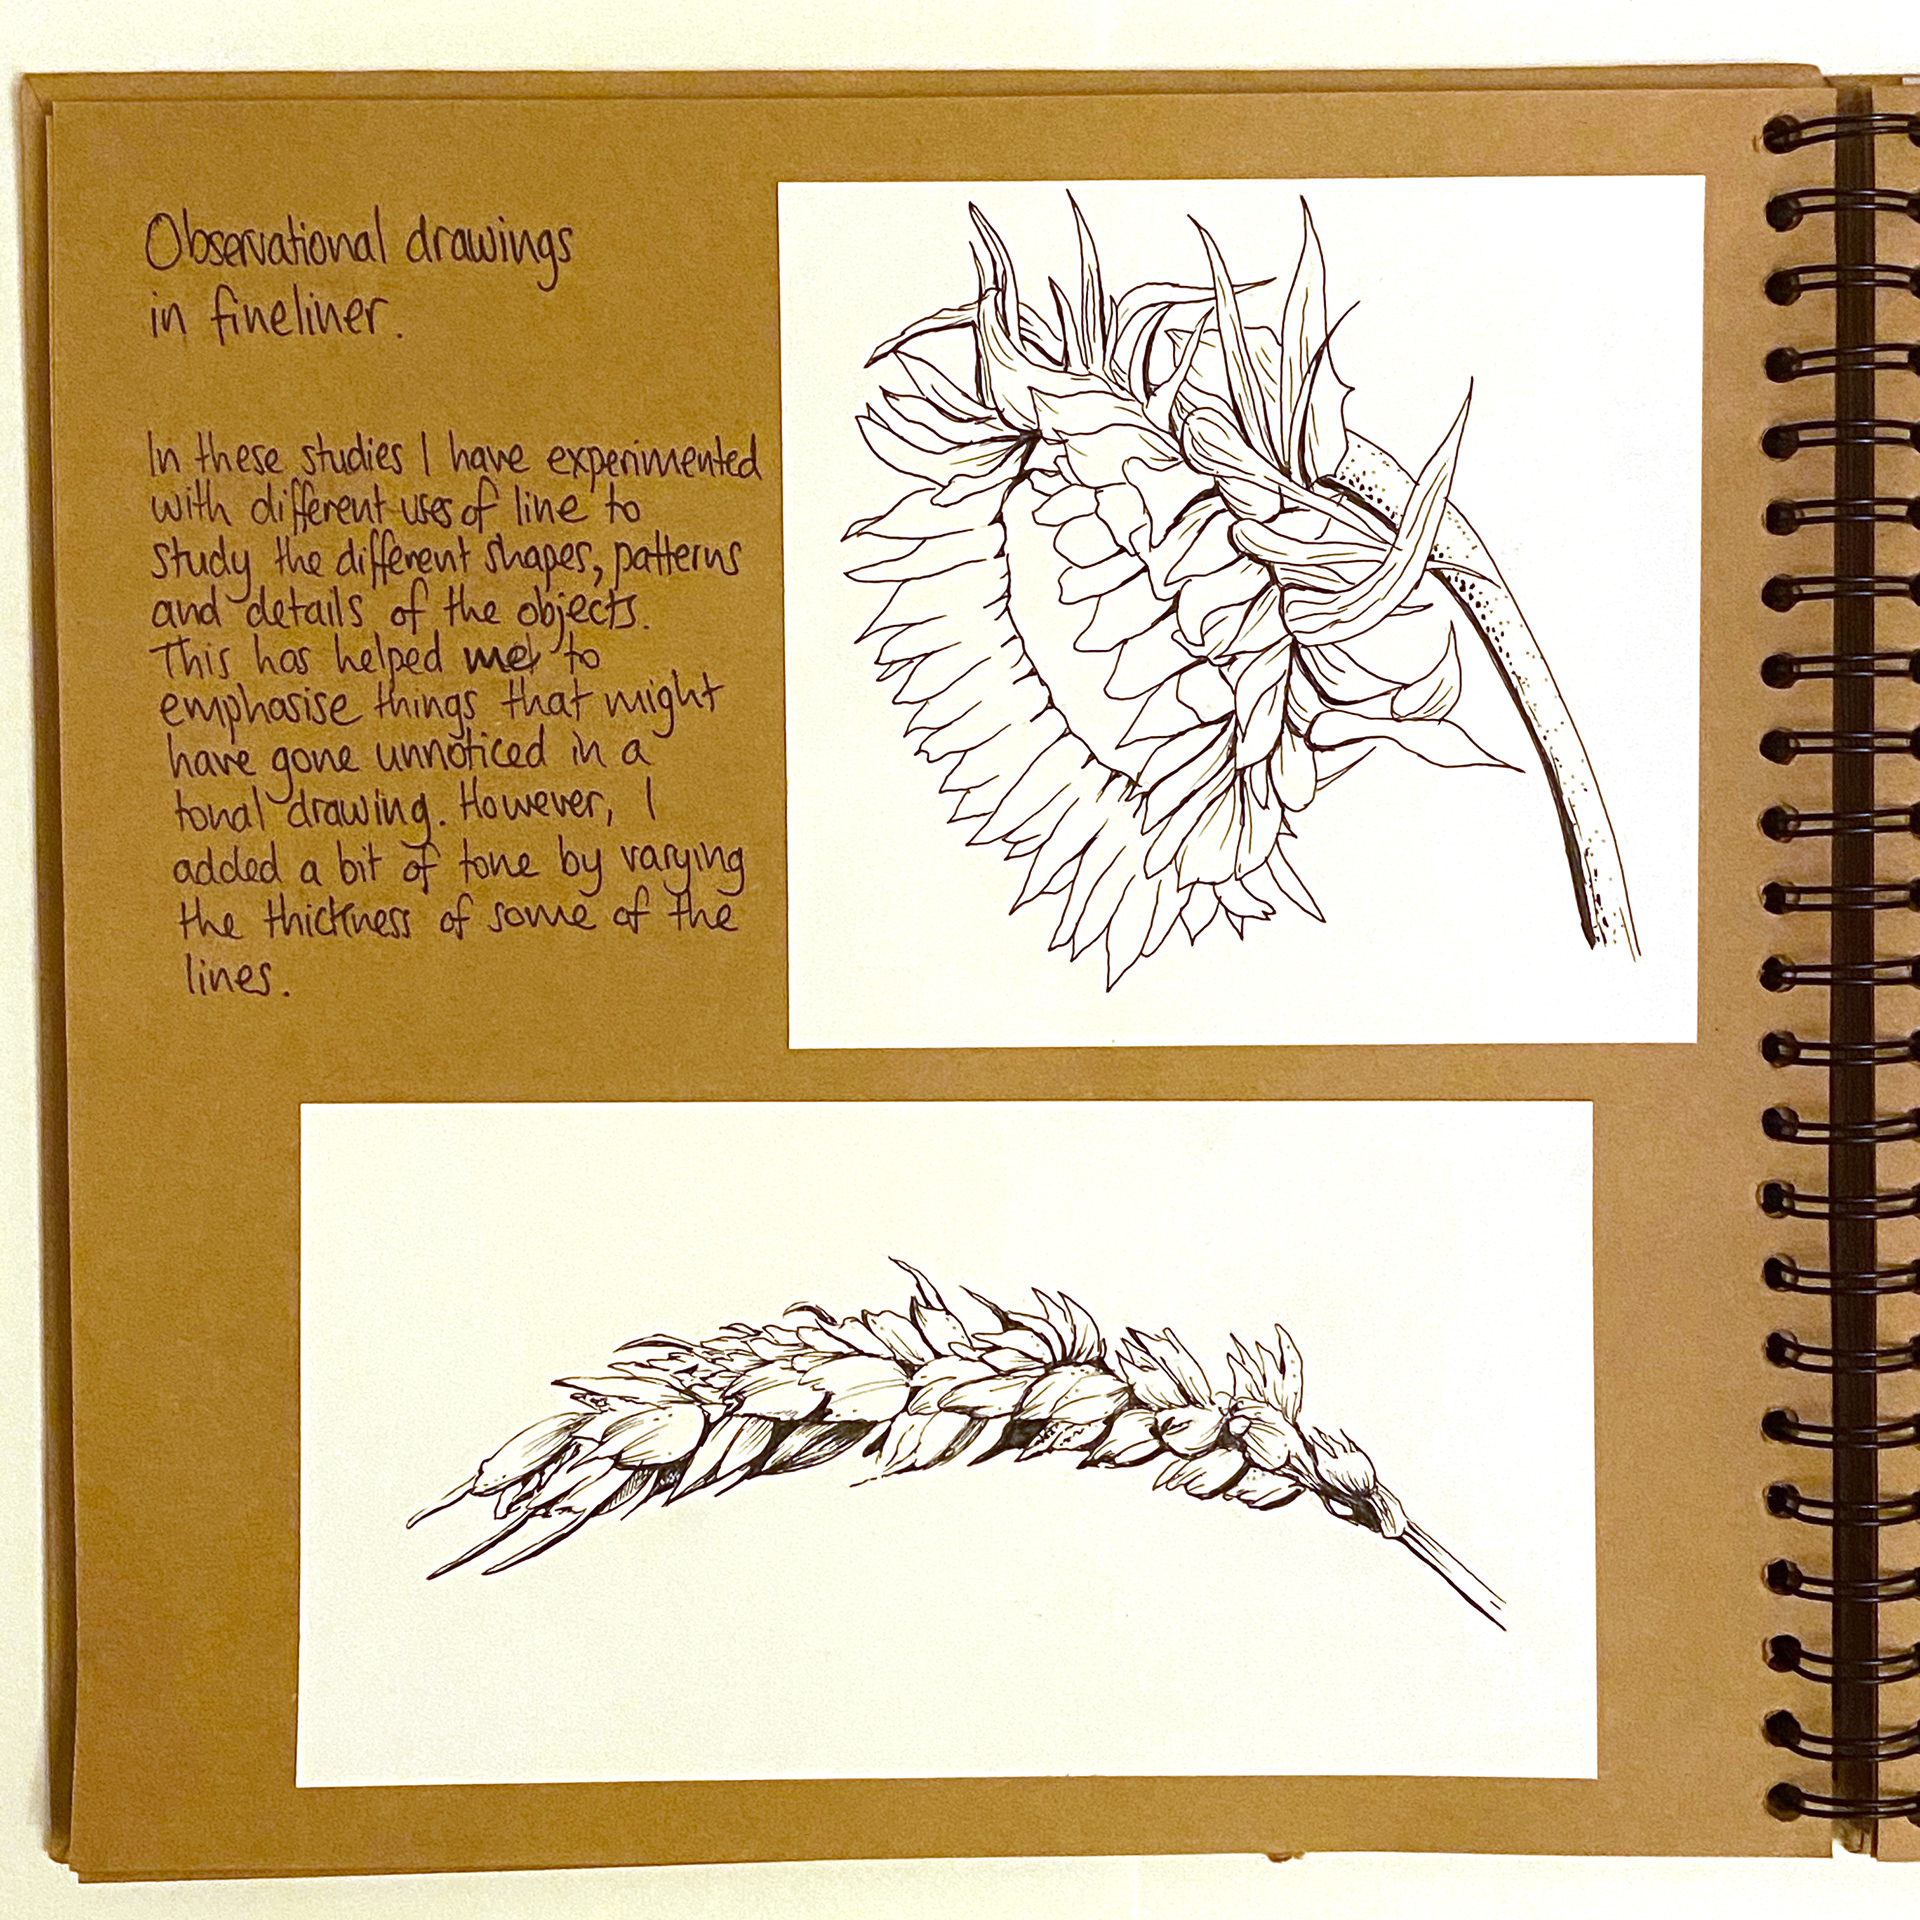 Observational drawings
in fineliner.
In these studies I have experimented
with different uses of line to
study the different shapes, patterns
and details of the objects.
This has helped me to
emphasise things that might
have gone unnoticed in a
tonal drawing. However, I
added a bit of tone by varying
the thickness of some of the
lines.